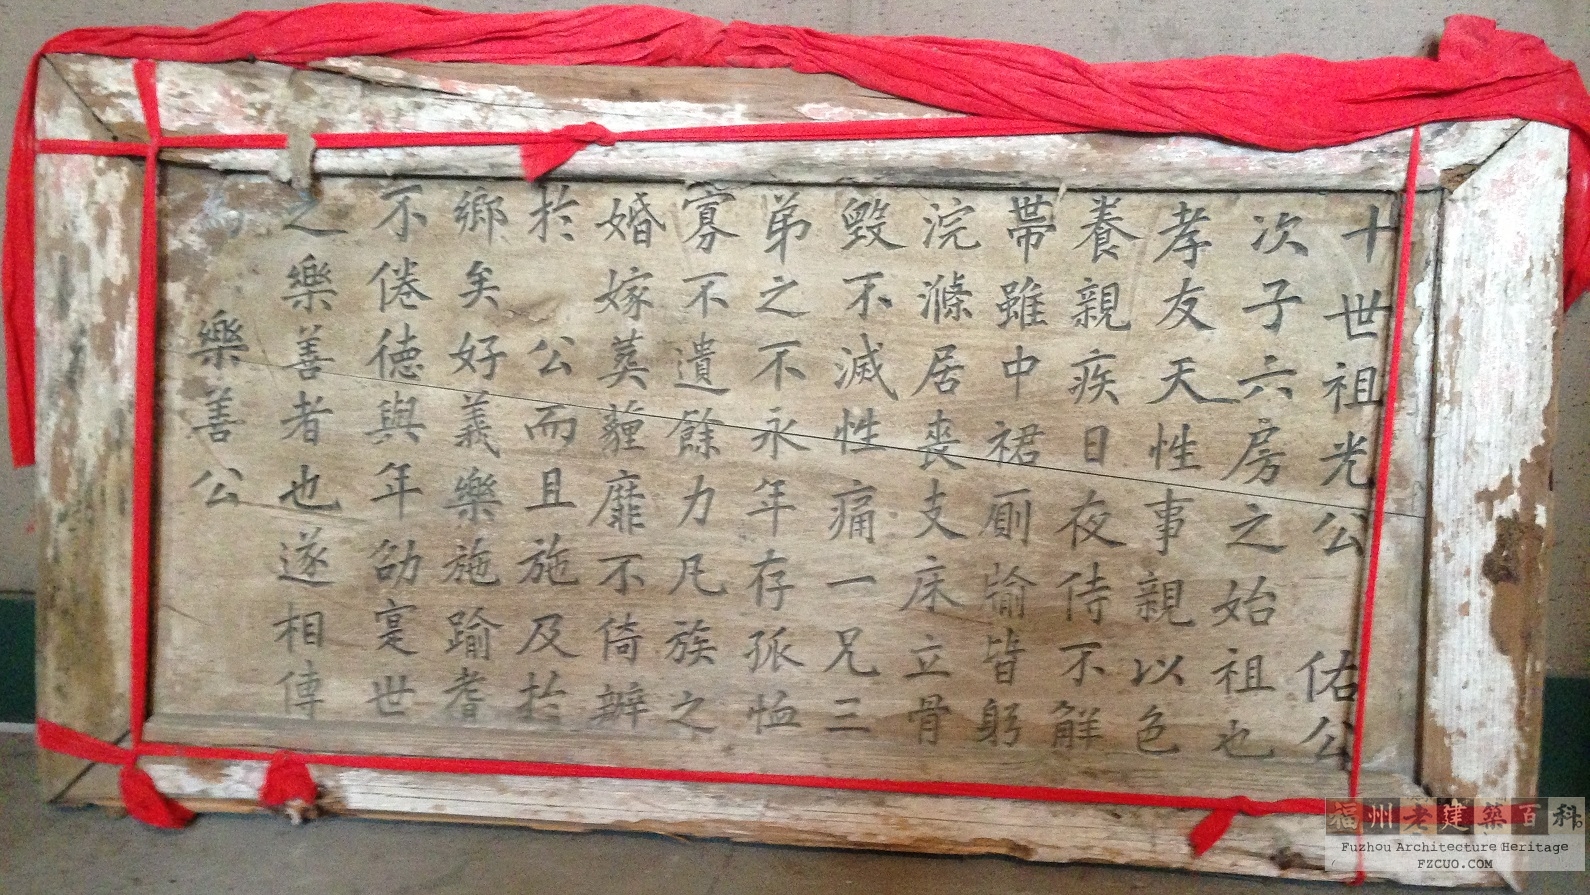 十世祖光公　佑公
次子六房之始祖也
孝友天性事親以色
養親疾日夜侍不解
帶雖中裙廁牏皆躬
浣滌居喪支床立骨
毀不滅性痛一兄三
弟之不永年存孤恤
寡不遺餘力凡族之
婚嫁葬薶靡不倚辦
於　公而且施及於
鄉矣好義樂施踰耆
不倦德與年劭寔世
之樂善者也遂相傳
樂善公
福州老建築百科
Fuzhou Architecture Heritage
FZCUO.COM